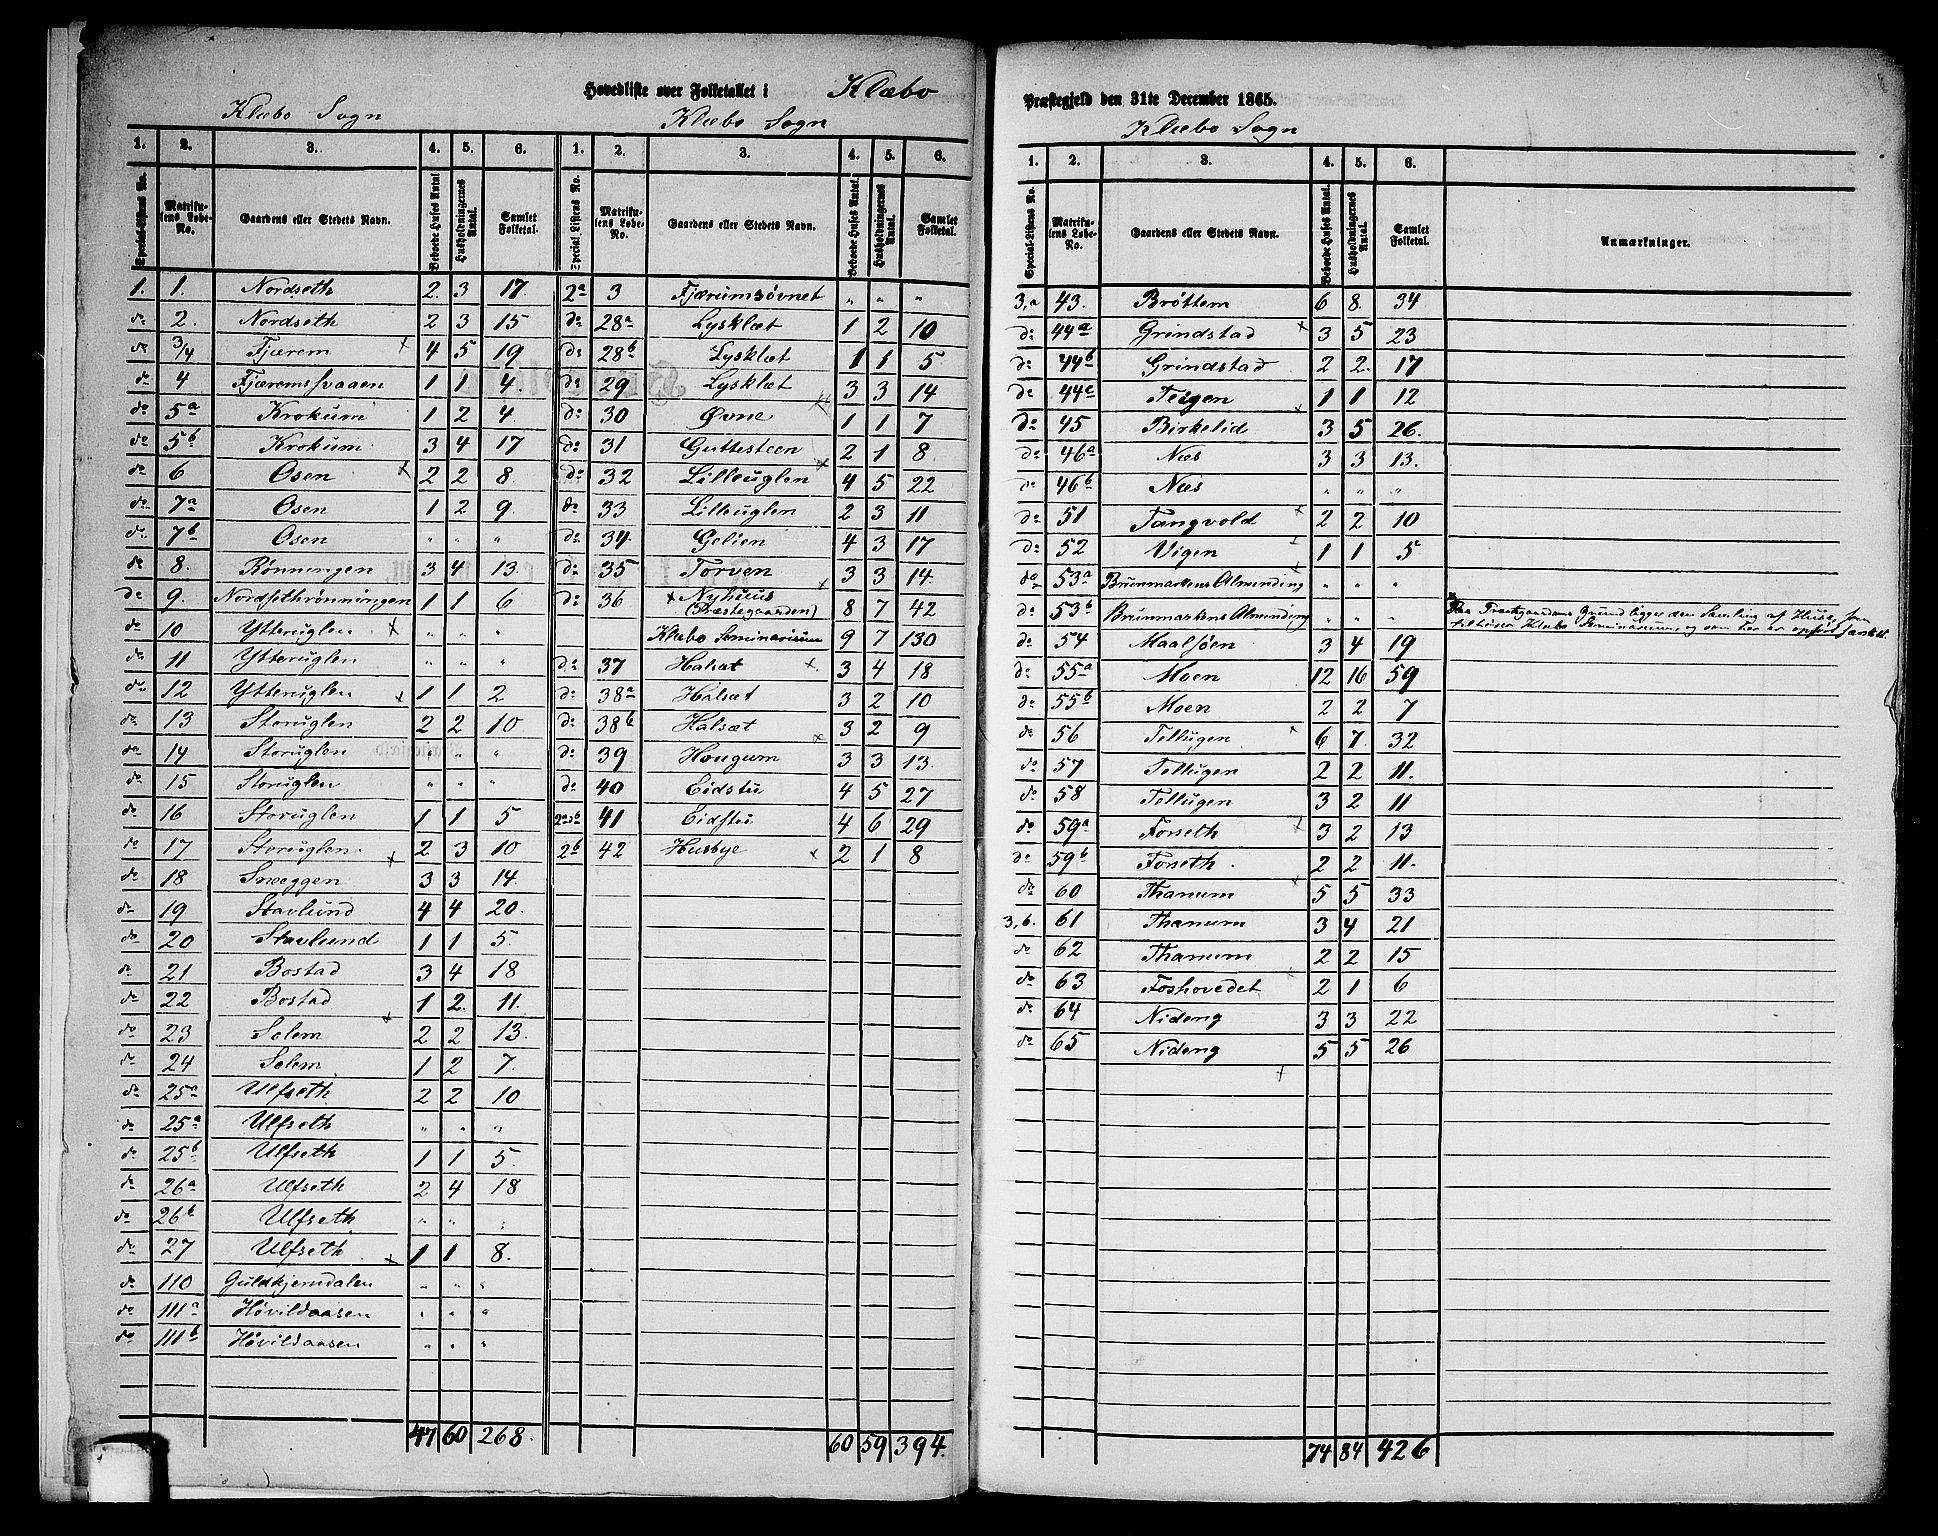 Hovedliste over Folketallet i Klæbo
Klæbo Sogn
Klæbo Sogn
1. 2. 3. 4. 5. 6. 1. 2. 3. 4. 5. 6.
Special-Listens No. Matriku-lens Løbe-No. Gaardens eller Stedets Navn. Beboede Huses Antal Husholdningernes Antal. Samlet Folketal. Special-Listens No. Matriku-lens Løbe-No. Gaardens eller Stedets Navn. Beboede Huses Antal. Husholdningernes Antal. Samlet Folketal.
1. 1. Nordseth 2. 3 17.
do 2. Nordseth 2 3 15
do 3/4 Fjærem x 4 5 19
do 4 Fjæremssvaaen 1 1 4.
do 5a Krokum 1 2 4.
do 5b Krokum. 3 4 17
do 6 Osen x 2 2 8.
do 7a Osen 1 2 9.
do 7b Osen " " "
do 8. Rønningen 3 4 13.
do 9. Nordsethrønningen 1 1 6
do 10 Ytteruglen x " " "
do 11 Ytteruglen " " "
do 12 Ytteruglen x 1 1 2
do 13 Storuglen 2 2 10
do 14 Storuglen " " "
do 15 Storuglen " " "
do 16 Storuglen 1 1 5
do 17 Storuglen. x 2 3 10
do 18 Sneeggen 3 3 14.
do 19 Stavlund 4 4 20.
do 20 Stavlund 1 1 5.
do 21 Bostad 3 4 18
do 22 Bostad x 1 2. 11.
do 23 Solem 2 2 13.
do 24 Solem 1 2 7.
do 25a Ulfseth 2 2 10
do 25a Ulfseth " " "
do 25b Ulfseth 1 1 5.
do 26a Ulfseth 2 4 18
do 26b Ulfseth " " "
do 27 Ulfseth x 1 1 8.
do 110 Guldkjerndalen " " "
do 111a Høvildaasen " " "
do 111b Høvildaasen " " "
47 60 268.
2a 3 Fjærumsøvnet " " "
do 28a Lysklæt 1 2 10
do 28b Lysklæt 1 1 5
do 29 Lysklæt 3 3 14
do 30 Øvne 1 1 7
do 31 Guttesteen x 2 1 8.
do 32 Lilleuglen 4 5 22
do 33 Lilleuglen 2 3 11
do 34 Gelien 4 3 17
do 35 Torven x 3 3 14.
do 36 x Nyhuus (Præstegaarden) 8 7 42
Klæbo Seminarium 9 7 130
do 37 Halsæt x. 3 4 18
do 38a Halsæt 3 2 10
do 38b Halsæt x 3 2 9
do 39 Hougum 3 3 13.
do 40 Eidstu 4 5 27
2a&b 41 Eidstu 4 6 29
2b 42 Husbye x 2 1 8
60 59 394.
Præstegjeld den 31te December 1865.
Klæbo Sogn
1. 2. 3. 4. 5. 6.
Special-Listens No. Matriku-lens Løbe-No. Gaardens eller Stedets Navn. Beboede Huses Antal. Husholdningernes Antal. Samlet Folketal. Anmærkninger.
3,a 43. Brøttem 6 8. 34
do 44a Grindstad x 3 5 23
do 44b Grindstad 2 2. 17
do 44c Teigen x 1 1 12
do 45 Birkelid 3 5 26.
do 46a Næs 3 3 13.
do 46b Næs " " "
do 51 Tangvold x 2 2 10
do 52 Vigen x 1 1 5
do 53a Brunmarkens Almending " " "
do 53b Brunmarkens Almending " " "
Paa Præstgaardens Grund ligger den Samling af Huse, som
tilhører Klæbo Seminarium, og som her er opført særskilt.
do 54 Maalsjøen 3 4 19
do 55a Moen 12 16 59
do 55b Moen 2 2 7
do 56 Tellugen x 6 7. 32
do 57 Tellugen 2 2 11.
do 58 Tellugen 3 2 11
do 59a Forseth x 3 2 13
do 59b Forseth. 2 2 11.
do 60 Thanum x 5 5 33
3,b. 61 Thanum 3 4 21
do 62 Thanum 2 2 15
do 63 Foshovedet x 2 1 6
do 64 Nideng 3 3 22
do 65 Nideng x 5 5 26
74 84 426